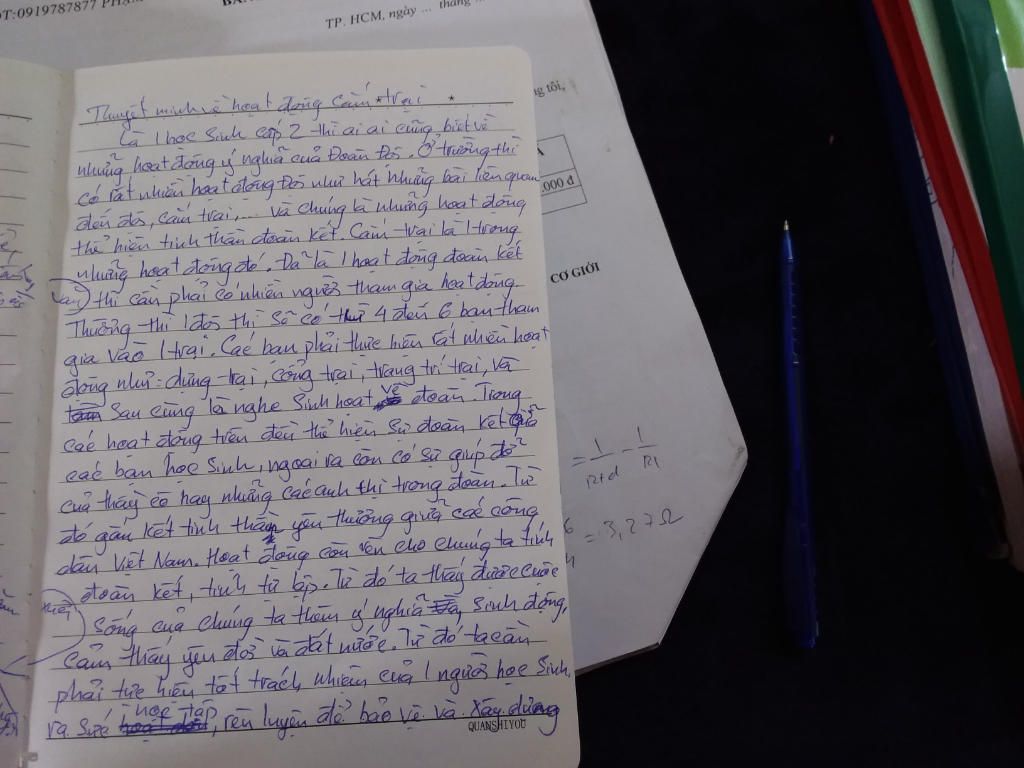 ĐT:0919787877
TP. HCM, ngày ... tháng ...
Thuyết minh về hoạt động cắm trại
Là 1 học sinh cấp 2 thì ai ai cũng biết về
những hoạt động ý nghĩa của Đoàn Đội. Ở trường thì
có rất nhiều hoạt động Đội như hát những bài liên quan
đến đội, cắm trại,... và chúng là những hoạt động
thể hiện tinh thần đoàn kết. Cắm trại là 1 trong
những hoạt động đó. Đã là 1 hoạt động đoàn kết
thì cần phải có nhiều người tham gia hoạt động.
Thường thì 1 đội thì sẽ có từ 4 đến 6 bạn tham
gia vào 1 trại. Các bạn phải thực hiện rất nhiều hoạt
động như: dựng trại, cổng trại, trang trí trại, và
sau cùng là nghe sinh hoạt về đoàn. Trong
các hoạt động trên đều thể hiện sự đoàn kết giữa
các bạn học sinh, ngoài ra còn có sự giúp đỡ
của thầy cô hay những các anh thị trong đoàn. Từ
đó gắn kết tinh thần yêu thương giữa các công
dân Việt Nam. Hoạt động còn rèn cho chúng ta tính
đoàn kết, tính tự lập. Từ đó ta thấy được cuộc
sống của chúng ta thêm ý nghĩa, sinh động,
cảm thấy yêu đời và đất nước. Từ đó ta cần
phải thực hiện tốt trách nhiệm của 1 người học sinh,
ra sức học tập, rèn luyện để bảo vệ và xây dựng
QUANSHIYOU
ng tôi,
.000 đ
CƠ GIỚI
= 1/R+d - 1/R1
= 3,27Ω